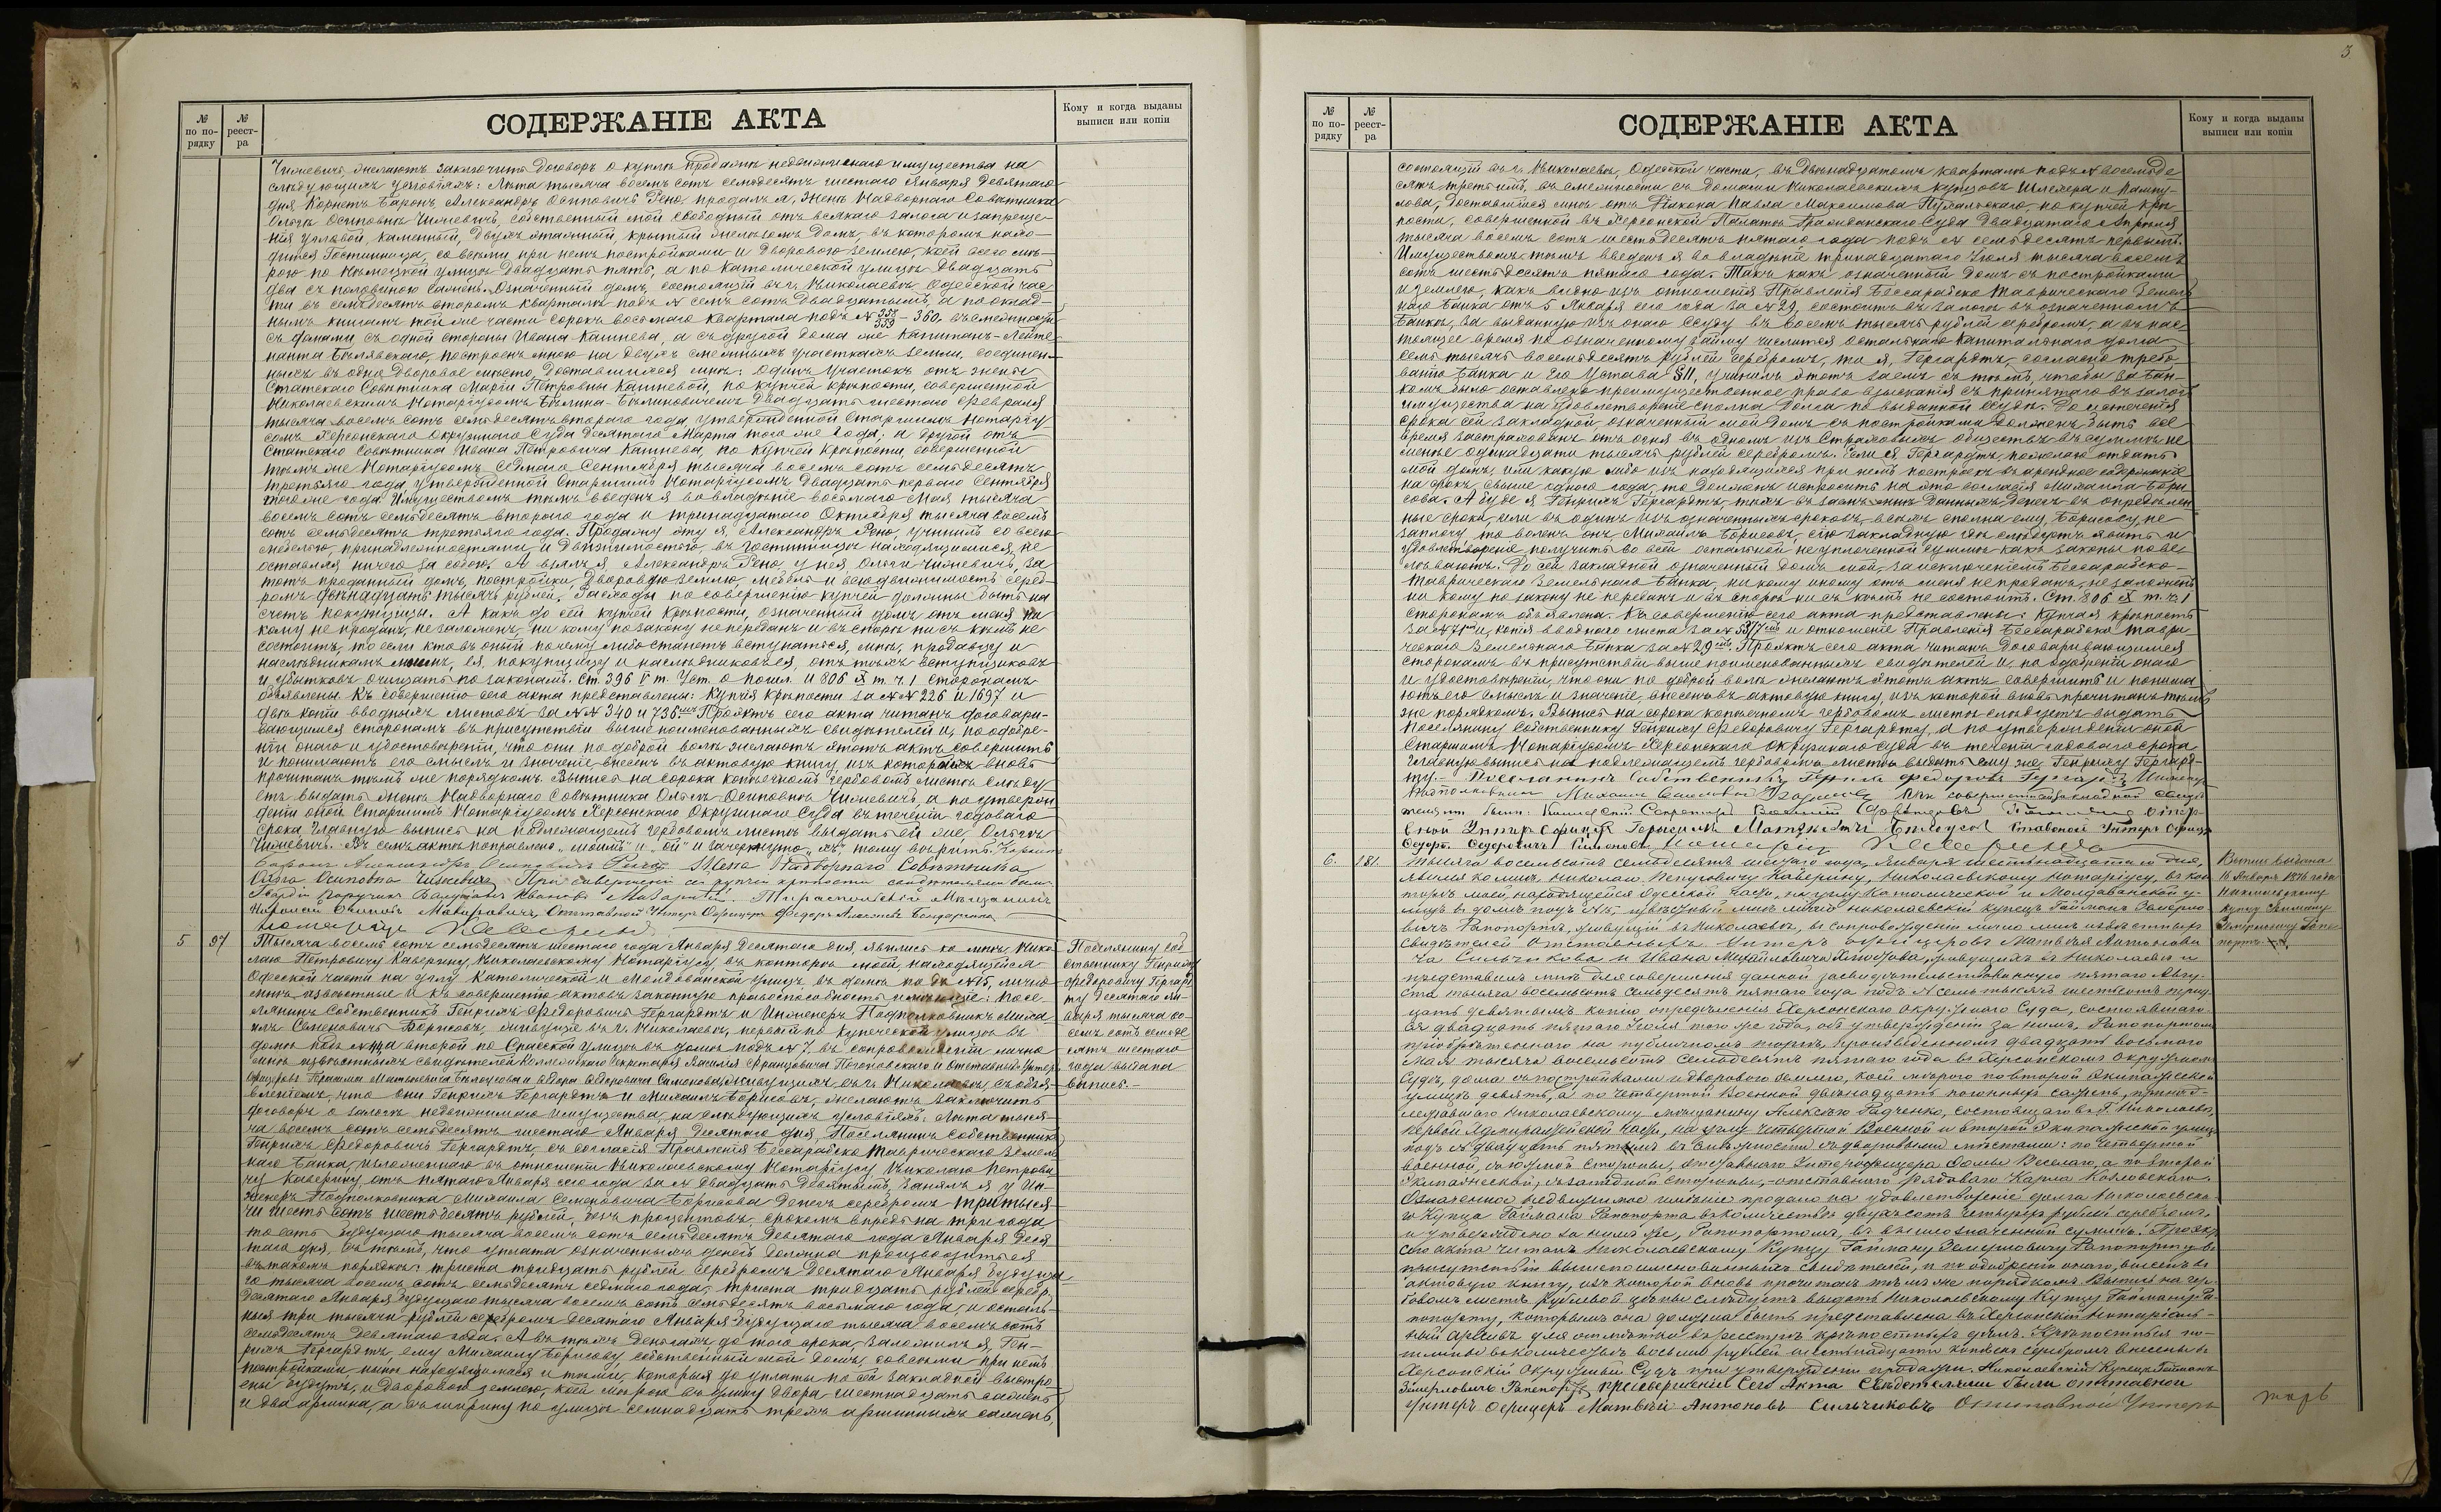 № по по-рядку
№ реест-ра
СОДЕРЖАНІЕ АКТА
Кому и когда выданы выписи или копіи
Чижевичъ, желаютъ заключить договоръ о куплѣ продажѣ недвижимаго имущества на
слѣдующихъ условіяхъ: Лѣта тысяча восемь сотъ семьдесятъ шестаго Января девятаго
дня Корнетъ Баронъ Александръ Осиповичъ Рено, продалъ я, женѣ Надворнаго Совѣтника
Ольгѣ Осиповнѣ Чижевичъ, собственный мой свободный отъ всякаго залога и запреще-
нія угловой, каменный, двухъ этажный, крытый желѣзомъ домъ, въ которомъ нахо-
дится Гостинница, со всѣми при немъ постройками и дворовою землею, коей всего мѣ-
рою по Нѣмецкой улицѣ двадцать пять, а по Католической улицѣ двадцать
два съ половиною сажень. Означенный домъ, состоящій въ г. Николаевѣ Одесской час-
ти въ семьдесятъ второмъ кварталѣ подъ № семь сотъ двадцатымъ, а по оклад-
нымъ книгамъ той же части сорокъ восьмаго квартала подъ № - 360. въ смежности
съ домами, съ одной стороны Ивана Кашнева, а съ другой дома же Капитанъ-Лейте-
нанта Бѣлявскаго, построенъ мною на двухъ смежныхъ участкахъ земли, соединен-
ныхъ въ одно дворовое мѣсто, доставшихся мнѣ: одинъ участокъ отъ жены
Статскаго Совѣтника Маріи Петровны Кашневой, по купчей крѣпости, совершенной
Николаевскимъ Нотаріусомъ двадцать шестаго Февраля
тысяча восемь сотъ семьдесятъ втораго года, утвержденной Старшимъ Нотаріу
сомъ Херсонскаго Окружнаго Суда десятаго Марта того же года; а другой отъ
Статскаго Совѣтника Ивана Петровича Кашнева, по купчей крѣпости, совершенной
тѣмъ же Нотаріусомъ седьмаго Сентября тысяча восемь сотъ семьдесятъ
третьяго года, утвержденной Старшимъ Нотаріусомъ двадцать перваго Сентября
того же года. Имуществомъ тѣмъ введенъ я во владѣніе восьмаго Мая тысяча
восемь сотъ семьдесятъ втораго года и тринадцатаго Октября тысяча восемь
сотъ семьдесятъ третьяго года. Продажу эту я, Александръ Рено, учинилъ со всею
мебелью, принадлежностями и движимостью, въ гостинницѣ находящимися, не
оставляя ничего за собою. А взялъ я, Александръ Рено, у нея Ольги Чижевичъ, за
тотъ проданный домъ, постройки, дворовую землю, мебель и всю движимость сереб-
ромъ двѣнадцать тысячъ рублей. Расходы по совершенію купчей должны быть на
счетъ покупщицы. А какъ до сей купчей крѣпости, означенный домъ отъ меня ни
кому не проданъ, не заложенъ, ни кому по закону не переданъ и въ спорѣ ни съ кѣмъ не
состоитъ, то если кто въ оный почему либо станетъ вступаться, мнѣ, продавцу и
наслѣдникамъ моимъ, ея, покупщицу и наслѣдниковъ ея, отъ тѣхъ вступщиковъ
и убытковъ очищать по законамъ. Ст. 396 V т. Уст. о пошл. и 806 X т. ч. 1 сторонамъ
объявлены. Къ совершенію сего акта представлены: купчія крѣпости за №№ 226 и 1697 и
двѣ копіи вводныхъ листовъ за №№ 340 и 736. Проэктъ сего акта читанъ договари-
вающимся сторонамъ въ присутствіи вышепоименованныхъ свидѣтелей и, по одобре-
ніи онаго и удостовѣреніи, что они по доброй волѣ желаютъ этотъ актъ совершить
и понимаютъ его смыслъ и значеніе внесенъ въ актовую книгу изъ которой вновь
прочитанъ тѣмъ же порядкомъ. Выпись на сорока копѣечномъ гербовомъ листѣ слѣду-
етъ выдать женѣ Надворнаго Совѣтника Ольгѣ Осиповнѣ Чижевичъ, а по утверж-
деніи оной Старшимъ Нотаріусомъ Херсонскаго Окружнаго Суда въ теченіи годоваго
срока главную выпись на надлежащемъ гербовомъ листѣ выдать ей же, Ольгѣ
Чижевичъ. Въ семъ актѣ поправлено „моимъ" и „ой" и зачеркнуто „хъ", тому вѣрить. Корнетъ
Баронъ Александръ Осиповичъ Рено. Жена Надворнаго Совѣтника
Ольга Осиповна Чижевичъ. При совершеніи сей купчей крѣпости свидѣтелями были:
Поручикъ Иванъ Тираспольскій Мѣщанинъ
Отставной Унтеръ Офицеръ Федоръ
Нотаріусъ Каверинъ
5 97
Тысяча восемь сотъ семьдесятъ шестаго года Января десятаго дня, явились ко мнѣ, Нико-
лаю Петровичу Каверину, Николаевскому Нотаріусу въ контору мою, находящейся
Одесской части на углу Католической и Молдованской улицъ въ домѣ подъ № 15, лично
мнѣ извѣстные и къ совершенію актовъ законную правоспособность имѣющіе: Посе-
лянинъ Собственникъ Генрихъ Федоровичъ Гергардтъ и Инженеръ Подполковникъ Миха-
илъ Семеновичъ Борисовъ, живущіе въ г. Николаевѣ, первый по Купеческой улицѣ въ
домѣ подъ № а второй по Спасской улицѣ въ домѣ подъ № 7. въ сопровожденіи лично
мнѣ извѣстныхъ свидѣтелей Коллежскаго Секретаря Василія Францовича и отставныхъ Унтеръ
Офицеровъ Герасима Матвѣевича Бѣлоусова и Федора Федоровича Симонова, живущихъ въ г. Николаевѣ съ объяв-
леніемъ, что они Генрихъ Гергардтъ и Михаилъ Борисовъ, желаютъ заключить
договоръ о залогѣ недвижимаго имущества, на слѣдующихъ условіяхъ. Лѣта тыся-
ча восемь сотъ семьдесятъ шестаго Января десятаго дня, Поселянинъ Собственникъ
Генрихъ Федоровичъ Гергардтъ, съ согласія Правленія Бессарабско Таврическаго Земель-
наго Банка, изложеннаго въ отношеніи Николаевскому Нотаріусу Николаю Петрови-
чу Каверину отъ пятаго Января сего года за № двадцать девятымъ, занялъ я у Ин-
женеръ Подполковника Михаила Семеновича Борисова денегъ серебромъ три тыся-
чи шесть сотъ шестьдесятъ рублей, безъ процентовъ, срокомъ впредь на три года
то есть будущаго тысяча восемь сотъ семьдесятъ девятаго года Января деся
таго дня, съ тѣмъ, что уплата означенныхъ денегъ должна производиться
въ такомъ порядкѣ: триста тридцать рублей серебромъ десятаго Января будуща-
го тысяча восемь сотъ семьдесятъ седьмаго года, триста тридцать рублей серебр.
десятаго Января будущаго тысяча восемь сотъ семьдесятъ восьмаго года, и осталь-
ныя три тысячи рублей серебромъ десятаго Января будущаго тысяча восемь сотъ
семьдесятъ девятаго года. А въ тѣхъ деньгахъ, до того срока, заложилъ я, Ген-
рихъ Гергардтъ, ему Михаилу Борисову собственный мой домъ, со всѣми при немъ
постройками, нынѣ находящимися и тѣми, которыя до уплаты по сей закладной выстро
ены будутъ, и дворовою землею, коей мѣрою въ улицу двора, шестнадцать сажень
и два аршина, а въ ширину по улицѣ семнадцать трехъ аршинныхъ сажень,
Поселянину Соб
ственнику Генриху
Федоровичу Гергард
ту десятаго Ян-
варя тысяча во-
семь сотъ семьде
сятъ шестаго
года выдана
выпись.-
3
№ по по-рядку
№ реест-ра
СОДЕРЖАНІЕ АКТА
Кому и когда выданы выписи или копіи
состоящій въ г. Николаевѣ, Одесской части, въ двѣнадцатомъ кварталѣ подъ № восемьде
сятъ третьимъ, въ смежности съ домами Николаевскихъ купцовъ Шлемера и
лова, доставшійся мнѣ отъ Павла Максимова по купчей крѣ
пости, совершенной въ Херсонской Палатѣ Гражданскаго Суда двадцатаго Апрѣля
тысяча восемь сотъ шестьдесятъ пятаго года подъ № семьдесятъ первымъ.
Имуществомъ тѣмъ введенъ я во владѣніе тринадцатаго Іюля тысяча восемь
сотъ шестьдесятъ пятаго года. Такъ какъ означенный домъ съ постройками
и землею, какъ видно изъ отношенія Правленія Бессарабско Таврическаго Земель
наго Банка отъ 5 Января сего года за № 29, состоитъ въ залогѣ въ означенномъ
Банкѣ, за выданную изъ онаго ссуду въ восемь тысячъ рублей серебромъ, а въ нас-
тоящее время по означенному займу числится остальнаго капитальнаго долга
семь тысячъ восемьдесятъ рублей серебромъ, то я, Гергардтъ, согласно требо
ванію Банка и его Устава § 11, учинилъ этотъ заемъ съ тѣмъ, чтобы за Бан-
комъ было оставлено преимущественное право взысканія съ принятаго въ залогъ
имущества на удовлетвореніе сполна долга по выданной ссудѣ. До истеченія
срока сей закладной, означенный мой домъ съ постройками долженъ быть все
время застрахованъ отъ огня въ одномъ изъ Страховыхъ обществъ въ суммѣ не
менѣе одинадцати тысячъ рублей серебромъ. Если я Гергардтъ, пожелаю отдать
мой домъ, или какую либо изъ находящихся при немъ построекъ въ арендное содержаніе
на срокъ свыше одного года, то долженъ испросить на это согласія Михаила Бори
сова. А буде я Генрихъ Гергардтъ, тѣхъ въ заемъ мнѣ данныхъ денегъ въ опредѣлен
ные сроки, или въ одинъ изъ означенныхъ сроковъ, всѣхъ сполна ему, Борисову, не
заплачу, то воленъ онъ, Михаилъ Борисовъ, сію закладную гдѣ слѣдуетъ явить и
удовлетвореніе получить во всей остальной неуплоченной суммѣ какъ законы пове
лѣваютъ. До сей закладной означенный домъ мой, за исключеніемъ Бессарабско-
Таврическаго Земельнаго Банка, ни кому иному отъ меня не проданъ, не заложенъ
ни кому по закону не переданъ и въ спорѣ ни съ кѣмъ не состоитъ. Ст. 806 X т. ч. 1
сторонамъ объявлена. Къ совершенію сего акта представлены: купчая крѣпость
за № 71 и, копія вводнаго листа за № и отношеніе Правленія Бессарабско Таври
ческаго Земельнаго Банка за № 29. Проэктъ сего акта читанъ договаривающимся
сторонамъ въ присутствіи выше поименованныхъ свидѣтелей и, по одобреніи онаго
и удостовѣреніи, что они по доброй волѣ желаютъ этотъ актъ совершить и понима
ютъ его смыслъ и значеніе, внесенъ въ актовую книгу, изъ которой вновь прочитанъ тѣмъ
же порядкомъ. Выпись на сорока копѣечномъ гербовомъ листѣ слѣдуетъ выдать
Поселянину Собственнику Генриху Федоровичу Гергардту, а по утвержденіи оной
Старшимъ Нотаріусомъ Херсонскаго Окружнаго Суда въ теченіи годоваго срока
главную выпись на надлежащемъ гербовомъ листѣ выдать ему же, Генриху Гергард-
ту.- Поселянинъ Собственникъ Генрихъ Федоровъ Гергардтъ Инженеръ
Подполковникъ Михаилъ Семеновъ Борисовъ При совершеніи закладной свидѣ
телями были: Коллежскій Секретарь Василій Францовъ Отста
вной Унтеръ Офицеръ Герасимъ Матвѣевъ Бѣлоусовъ Отставной Унтеръ Офицеръ
Федоръ Федоровичъ Симоновъ Нотаріусъ Каверинъ
6. 181.
Тысяча восемьсотъ семьдесятъ шестаго года, Января шестнадцатаго дня,
явился ко мнѣ, Николаю Петровичу Каверину, Николаевскому Нотаріусу, въ кон
тору мою, находящейся Одесской части, на углу Католической и Молдаванской у-
лицъ въ домѣ подъ № 15, извѣстный мнѣ лично Николаевскій купецъ Гайманъ Земерло
вичъ Рапопортъ, живущій въ Николаевѣ, въ сопровожденіи лично мнѣ извѣстныхъ
свидѣтелей Отставныхъ Унтеръ Офицеровъ Матвѣя Антонови
ча Сильчикова и Ивана Михайловича живущихъ въ Николаевѣ и
представилъ мнѣ для совершенія данной засвидѣтельствованную пятаго Авгу-
ста тысяча восемьсотъ семьдесятъ пятаго года подъ № семь тысячъ шестьсотъ трид
цать девятымъ копію опредѣленія Херсонскаго Окружнаго Суда, состоявшаго-
ся двадцать пятаго Іюля того же года, объ утвержденіи за нимъ, Рапопортомъ
пріобрѣтеннаго на публичномъ торгѣ, произведенномъ двадцать восьмаго
Мая тысяча восемьсотъ семьдесятъ пятаго года въ Херсонскомъ Окружномъ
Судѣ, дома съ постройками и дворовою землею, коей мѣрою по второй Экипажеской
улицѣ девять, а по четвертой Военной двѣнадцать погонныхъ сажень, принад-
лежавшаго Николаевскому мѣщанину Алексѣю Радченко, состоящаго въ г. Николаевѣ,
первой Адмиралтейской части, на углу четвертой Военной и второй Экипажеской улицъ
подъ № двадцать пятымъ въ смежности съ дворовыми мѣстами: по четвертой
военной, съ южной стороны, отставнаго Унтерофицера Фомы Веселаго, а по второй
Экипажеской, съ западной стороны,-отставнаго рядоваго Карпа Козловскаго.
Означенное недвижимое имѣніе продано на удовлетвореніе долга Николаевска-
го Купца Гаймана Рапопорта въ количествѣ двухсотъ четырехъ рублей серебромъ,
и утверждено за нимъ же, Рапопортомъ, въ вышеозначенной суммѣ. Проэктъ
сего акта читанъ Николаевскому Купцу Гайману Земерловичу Рапопорту въ
присутствіи вышепоименованныхъ свидѣтелей, и по одобреніи онаго, внесенъ въ
актовую книгу, изъ которой вновь прочитанъ тѣмъ же порядкомъ. Выпись на гер-
бовомъ листѣ рублевой цѣны слѣдуетъ выдать Николаевскому Купцу Гайману Ра-
попорту, которымъ она должна быть представлена въ Херсонскій Нотаріаль-
ный архивъ для отмѣтки въ реестрѣ крѣпостныхъ дѣлъ. Крѣпостныя по-
шлины въ количествѣ восьми рублей шестнадцати копѣекъ серебромъ внесены въ
Херсонскій Окружный Судъ при утвержденіи продажи. Николаевскій Купецъ Гайманъ
Земерловичъ Рапопортъ, при совершеніи Сего Акта Свидѣтелями были отставной
Унтеръ Офицеръ Матвѣй Антоновъ Сильчиковъ Отставной Унтеръ
Выпись выдана
16 Января 1876 года
Николаевскому
купцу Гайману
Земерловичу Рапо
порту.